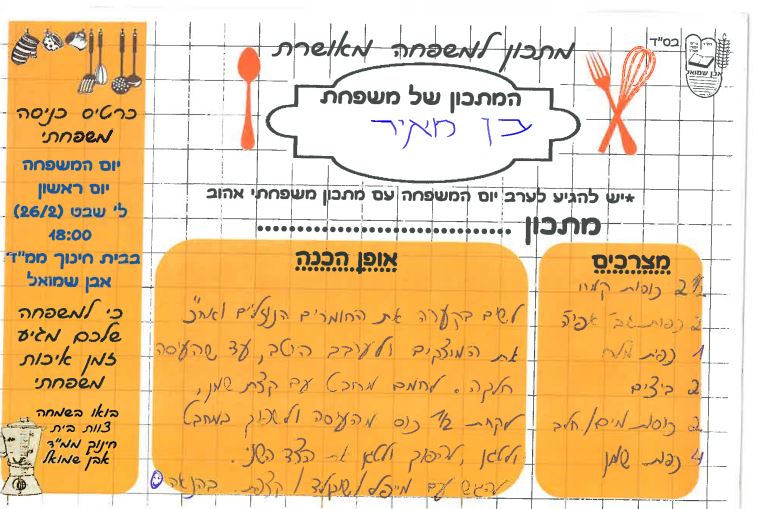 בס"ד
אבן שמואל
מתכון למשפחה מאושרת
המתכון של משפחת
בן מאיר
*יש להגיע לערב יום המשפחה עם מתכון משפחתי אהוב
מתכון
כרטיס כניסה
משפחתי
יום המשפחה
יום ראשון
ל' שבט (26/2)
18:00
בבית חינוך ממ"ד
אבן שמואל
כי למשפחה
שלכם מגיע
זמן איכות
משפחתי
בואו בשמחה
צוות בית
חינוך ממ"ד
אבן שמואל
מצרכים
2 1/2 כוסות קמח
2 כפות אב' אפיה
1 כפית מלח
2 ביצים
3 כוסות מים/חלב
4 כפות שמן
אופן הכנה
לשים בקערה את החומרים הנוזלים ואח"כ
את המוצקים ולערבב היטב, עד שהעיסה
חלקה. לחמם מחבט עם קצת שמן,
לקחת 1/2 כוס מהעיסה ולשפוך במחבט
ולטגן, להפוך ולטגן את הצד השני.
להגיש עם מייפל/שוקולד/קצפת. בהנאה